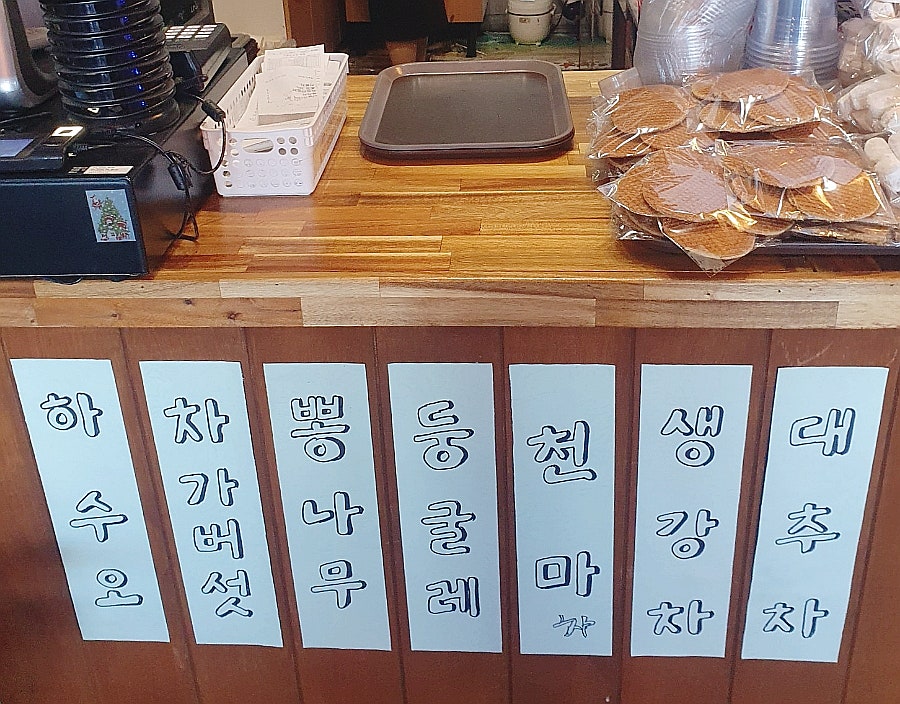 하수오
차가버섯
뽕나무
둥굴레
천마차
생강차
대추차